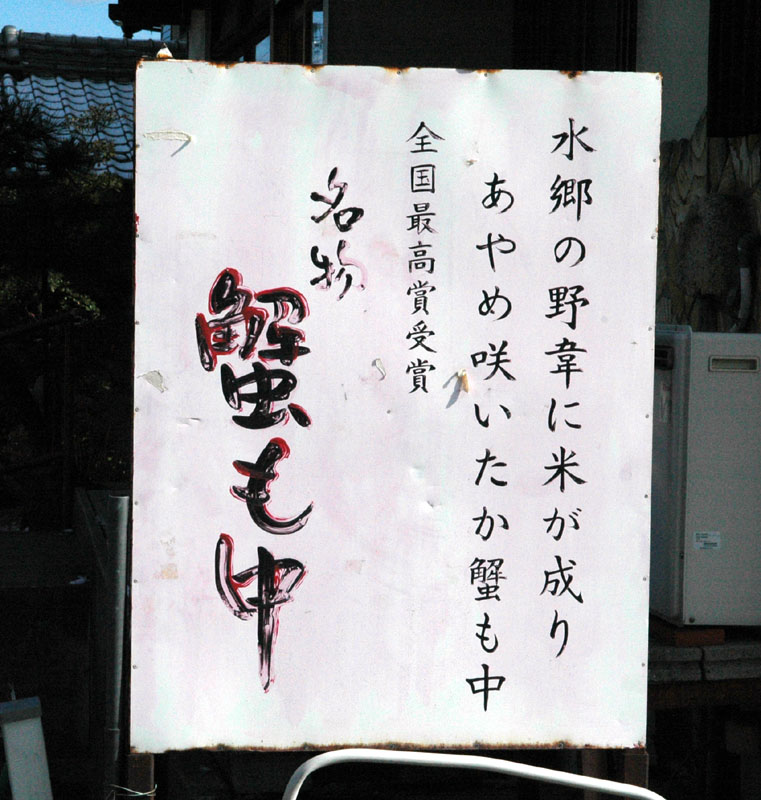 水郷の野韋に米が成り
あやめ咲いたか蟹も中
全国最高賞受賞
名物
蟹も中